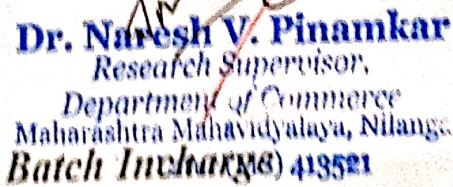 Dr. Naresh V. Pinamkar
Research Supervisor,
Department of Commerce
Maharashtra Mahavidyalaya, Nilanga
Batch Incharge) 413521